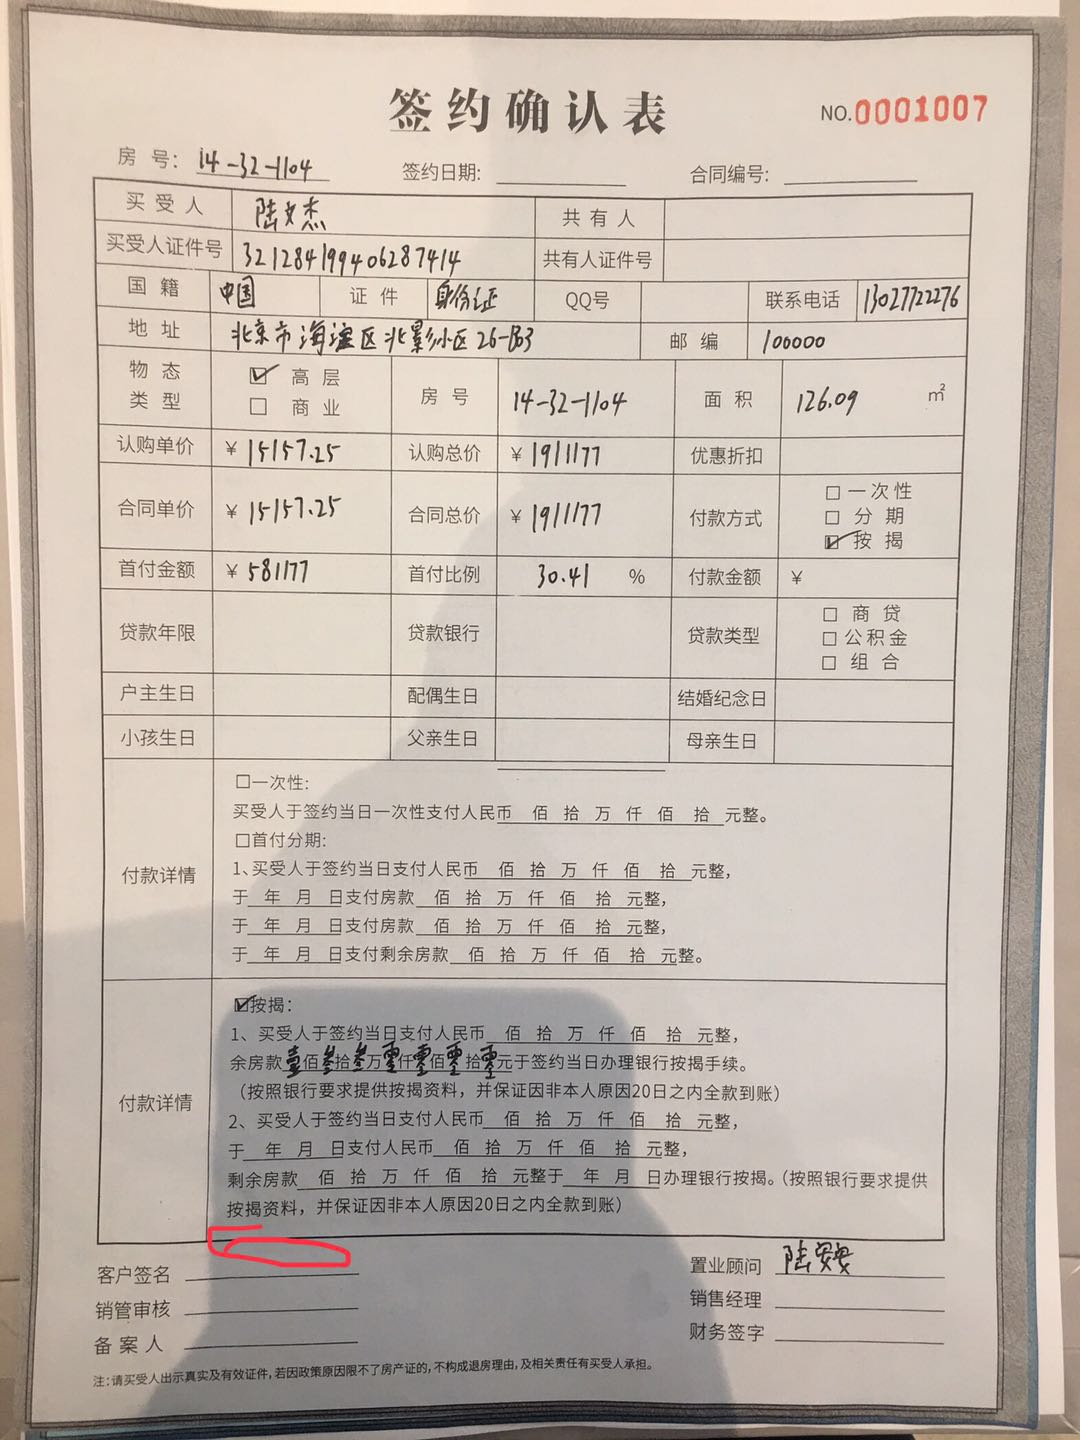 签约确认表
NO.0001007
房 号: 14-32-1104 签约日期: 合同编号:
买 受 人 陆文杰 共 有 人
买受人证件号 321284199406287414 共有人证件号
国 籍 中国 证 件 身份证 QQ号 联系电话 13027722276
地 址 北京市海淀区北影小区26-803 邮 编 100000
物 态 类 型 ☑ 高 层 □ 商 业 房 号 14-32-1104 面 积 126.09 ㎡
认购单价 ¥15157.25 认购总价 ¥1911177 优惠折扣
合同单价 ¥15157.25 合同总价 ¥1911177 付款方式 □一次性 □ 分 期 ☑ 按 揭
首付金额 ¥581177 首付比例 30.41 % 付款金额 ¥
贷款年限 贷款银行 贷款类型 □ 商 贷 □ 公积金 □ 组 合
户主生日 配偶生日 结婚纪念日
小孩生日 父亲生日 母亲生日
付款详情
□一次性:
买受人于签约当日一次性支付人民币 佰 拾 万 仟 佰 拾 元整。
□首付分期:
1、买受人于签约当日支付人民币 佰 拾 万 仟 佰 拾 元整,
于 年 月 日支付房款 佰 拾 万 仟 佰 拾 元整,
于 年 月 日支付房款 佰 拾 万 仟 佰 拾 元整,
于 年 月 日支付剩余房款 佰 拾 万 仟 佰 拾 元整。
付款详情
☑按揭:
1、买受人于签约当日支付人民币 佰 拾 万 仟 佰 拾 元整,
余房款壹佰叁拾叁万零仟零佰零拾零元于签约当日办理银行按揭手续。
(按照银行要求提供按揭资料,并保证因非本人原因20日之内全款到账)
2、买受人于签约当日支付人民币 佰 拾 万 仟 佰 拾 元整,
于 年 月 日支付人民币 佰 拾 万 仟 佰 拾 元整,
剩余房款 佰 拾 万 仟 佰 拾 元整于 年 月 日办理银行按揭。(按照银行要求提供
按揭资料,并保证因非本人原因20日之内全款到账)
客户签名 置业顾问 陆
销管审核 销售经理
备 案 人 财务签字
注:请买受人出示真实及有效证件,若因政策原因限不了房产证的,不构成退房理由,及相关责任有买受人承担。